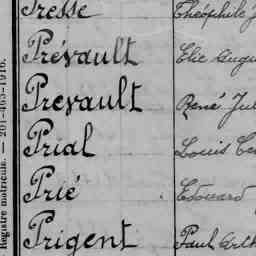 Presse Théophile
Prévault Elie Augu
Prevault René Jul
Prial Louis
Prié Edouard
Prigent Paul Arth
Registre matricule. — 201-465-1916.